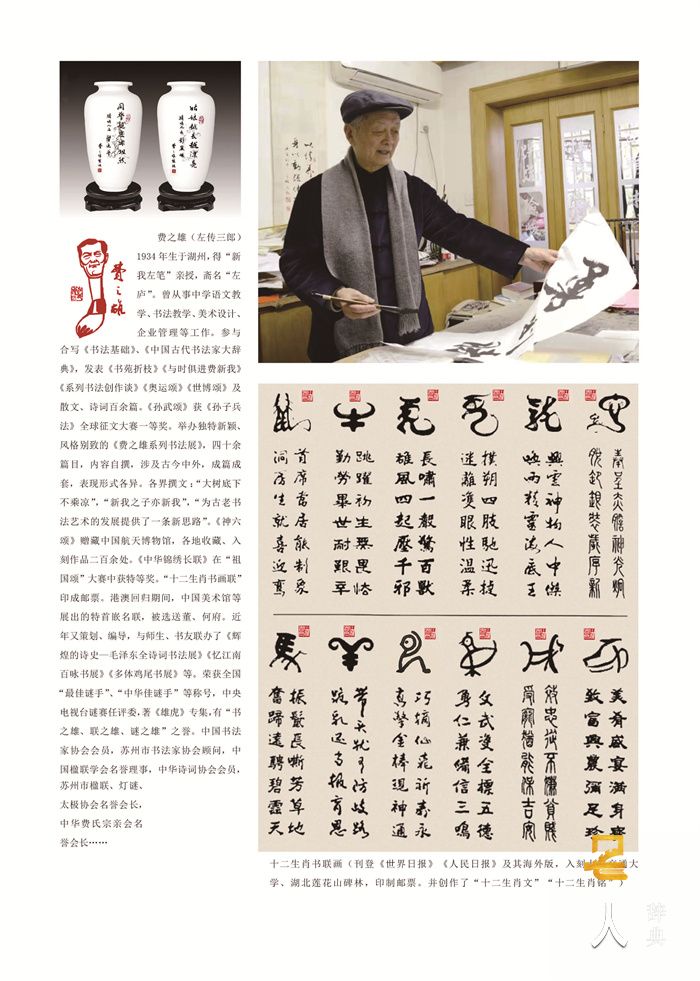 费之雄（左传三郎）
1934年生于湖州，得“新
我左笔”亲授，斋名“左
庐”。曾从事中学语文教
学、书法教学、美术设计、
企业管理等工作。参与
合写《书法基础》、《中国古代书法家大辞
典》，发表《书苑折枝》《与时俱进费新我》
《系列书法创作谈》《奥运颂》《世博颂》及
散文、诗词百余篇。《孙武颂》获《孙子兵
法》全球征文大赛一等奖。举办独特新颖、
风格别致的《费之雄系列书法展》，四十余
篇目，内容自撰，涉及古今中外，成篇成
套，表现形式各异。各界撰文：“大树底下
不乘凉”，“新我之子亦新我”，“为古老书
法艺术的发展提供了一条新思路”。《神六
颂》赠藏中国航天博物馆，各地收藏、入
刻作品二百余处。《中华锦绣长联》在“祖
国颂”大赛中获特等奖。“十二生肖书画联”
印成邮票。港澳回归期间，中国美术馆等
展出的特首嵌名联，被选送董、何府。近
年又策划、编导，与师生、书友联办了《辉
煌的诗史—毛泽东全诗词书法展》《忆江南
百咏书展》《多体鸡尾书展》等。荣获全国
“最佳谜手”、“中华佳谜手”等称号，中央
电视台谜赛任评委，著《雄虎》专集，有“书
之雄、联之雄、谜之雄”之誉。中国书法
家协会会员，苏州市书法家协会顾问，中
国楹联学会名誉理事，中华诗词协会会员，
苏州市楹联、灯谜、
太极协会名誉会长，
中华费氏宗亲会名
誉会长……
费之雄
首席当居能制象
洞房生就喜迎鸾
跳跃初生无畏怯
勤劳毕世耐艰辛
長嘯一声驚百獸
雄風四起壓千邪
撲朔四肢馳迅捷
迷離雙眼性温柔
興雲神物人中傑
喚雨於靈海底王
振鬣長嘶芳草地
奮蹄遠騁碧雲天
巧摘仙苑祈壽永
喜擎金棒現神通
文武雙全標五德
勇仁兼備信三鳴
美肴盛宴满身
致富興農彌足珍
十二生肖书联画（刊登《世界日报》《人民日报》及其海外版，入刻
学、湖北莲花山碑林，印制邮票。并创作了“十二生肖文”“十二生肖铭”）
人
辞典